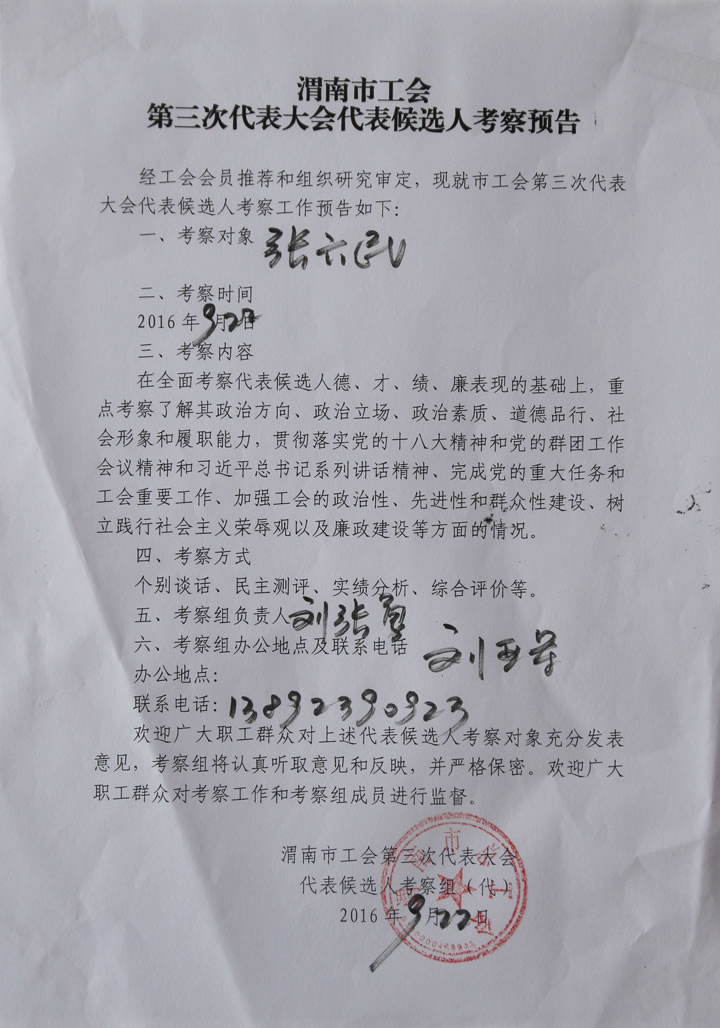 渭南市工会
第三次代表大会代表候选人考察预告
经工会会员推荐和组织研究审定，现就市工会第三次代表
大会代表候选人考察工作预告如下：
一、考察对象 张六民
二、考察时间
2016年9月22日
三、考察内容
在全面考察代表候选人德、才、绩、廉表现的基础上，重
点考察了解其政治方向、政治立场、政治素质、道德品行、社
会形象和履职能力，贯彻落实党的十八大精神和党的群团工作
会议精神和习近平总书记系列讲话精神、完成党的重大任务和
工会重要工作、加强工会的政治性、先进性和群众性建设、树
立践行社会主义荣辱观以及廉政建设等方面的情况。
四、考察方式
个别谈话、民主测评、实绩分析、综合评价等。
五、考察组负责人 刘张
六、考察组办公地点及联系电话
刘亚
办公地点：
联系电话：13892390923
欢迎广大职工群众对上述代表候选人考察对象充分发表
意见，考察组将认真听取意见和反映，并严格保密。欢迎广大
职工群众对考察工作和考察组成员进行监督。
渭南市工会第三次代表大会
代表候选人考察组（代）
2016年9月22日